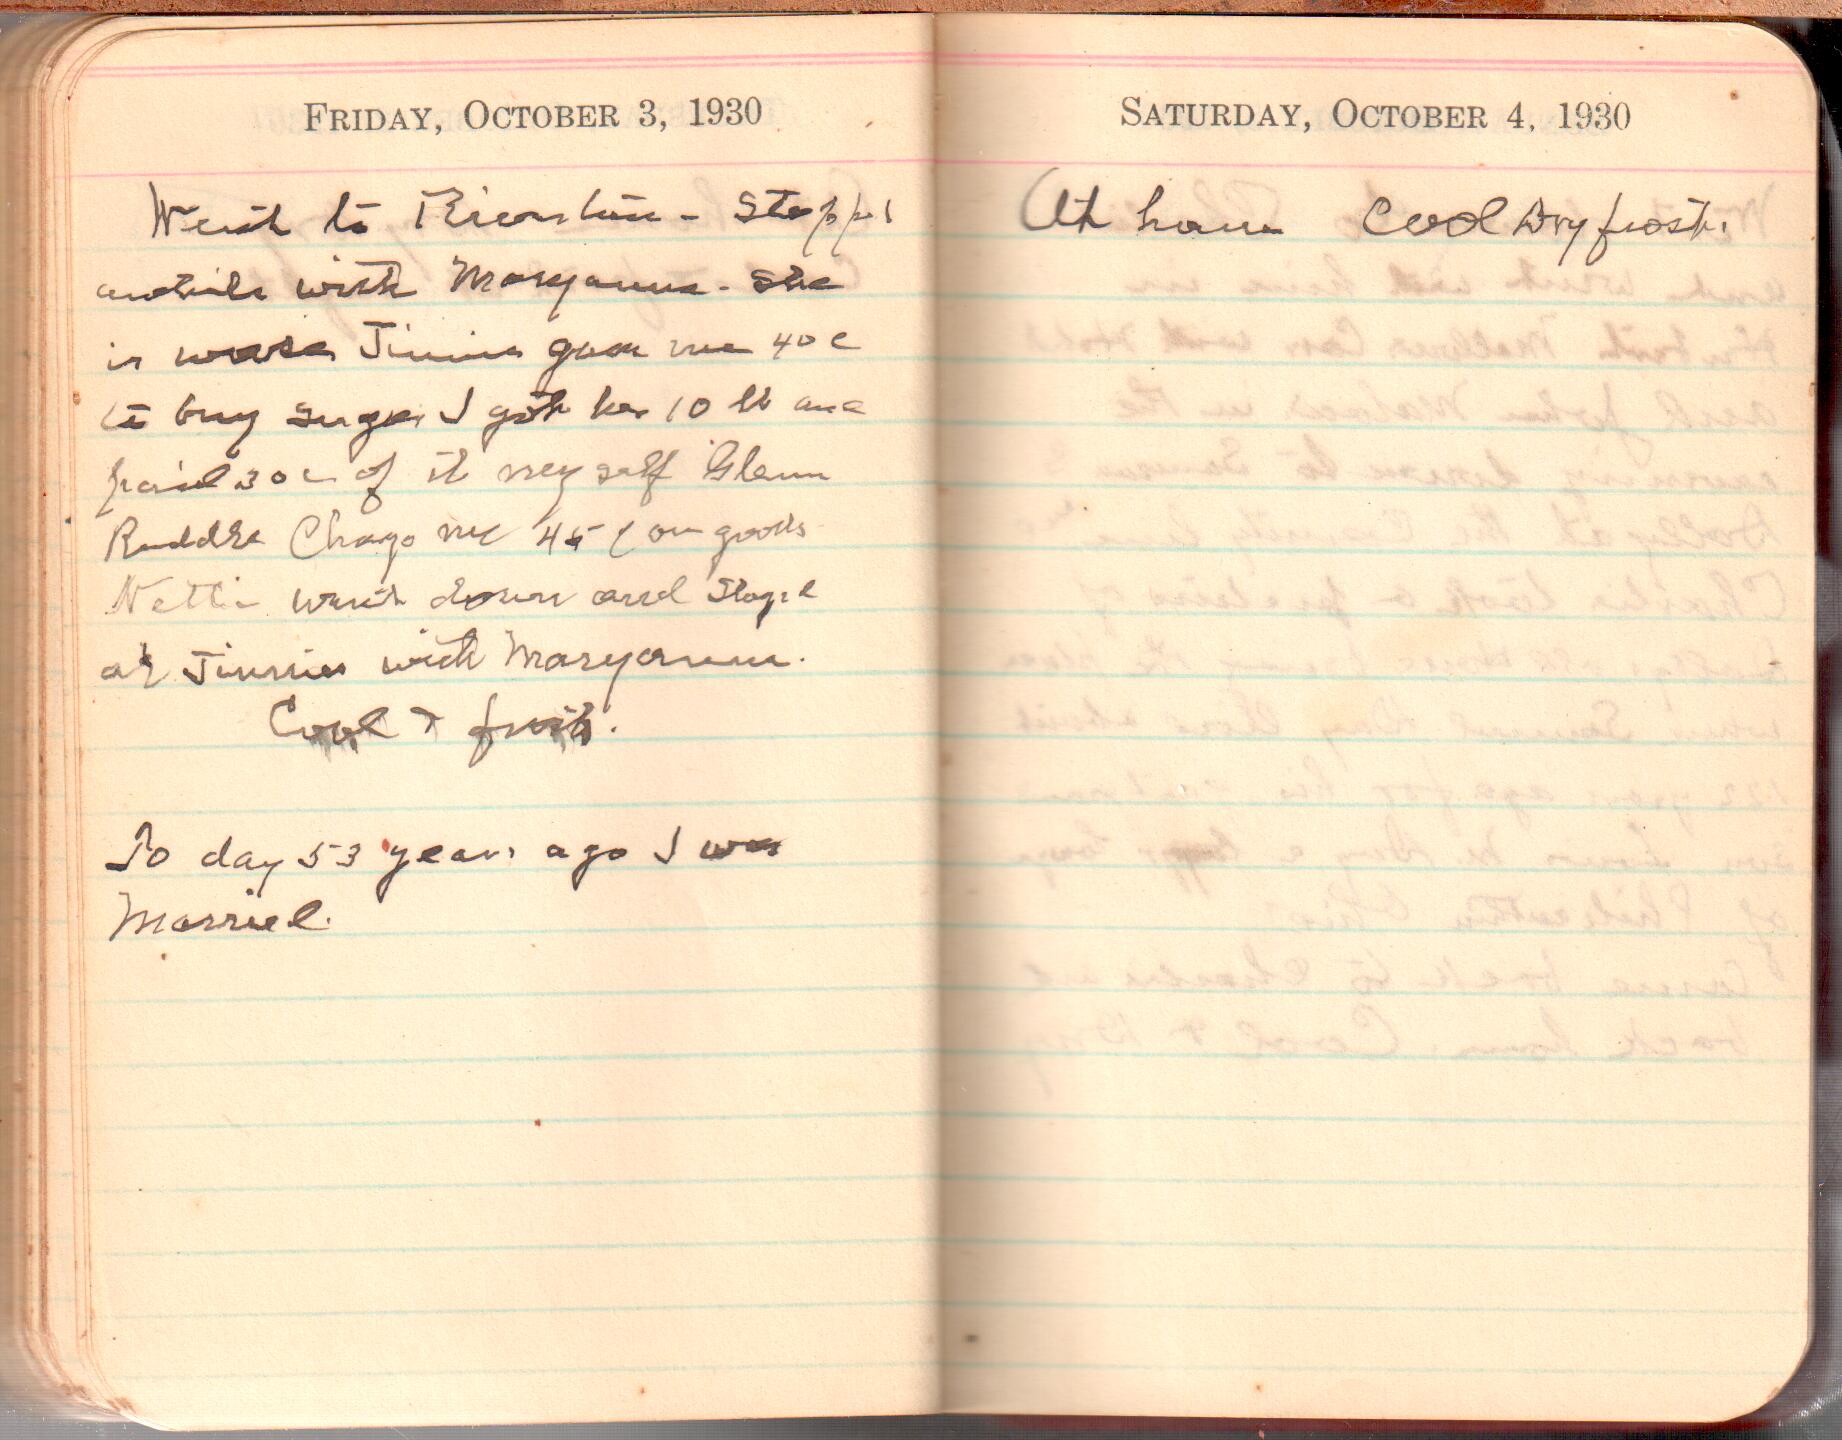 FRIDAY, OCTOBER 3, 1930
Went to - Stopped
awhile with Maryanne. She
is worse Jinnie gave me 40c
to buy sugar I got her 10 lb and
paid 30c of it my self Glenn
me 45 ¢ on goods
Nettie went down and Stayed
at Jinnies with Maryanne.
Cool &
To day 53 years ago I was
Married.
SATURDAY, OCTOBER 4, 1930
At home Cool Dry frost.